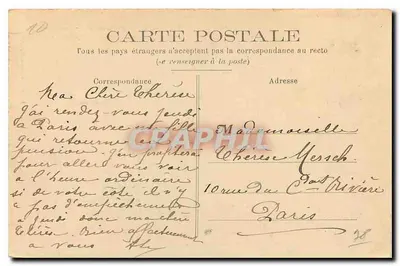 CARTE POSTALE
Tous les pays étrangers n'acceptent pas la correspondance au recto
(se renseigner à la poste)
Correspondance
Adresse
Ma Chère Thérèse
j'ai rendez-vous jeudi
à Paris avec ma fille
qui retourne en
pension. J'en profiterai
pour aller vous voir
à l'heure ordinaire
si de votre côté il n'y
a pas d'empêchement
à jeudi donc ma chère
Thérèse. Bien affectueusement
à vous
Mademoiselle
Thérèse Mersch
10 rue du Cdant Rivière
Paris
CPAPHIL